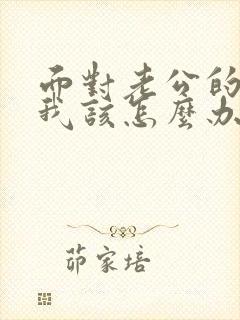 而對老公的
我該怎麼办
茆家培